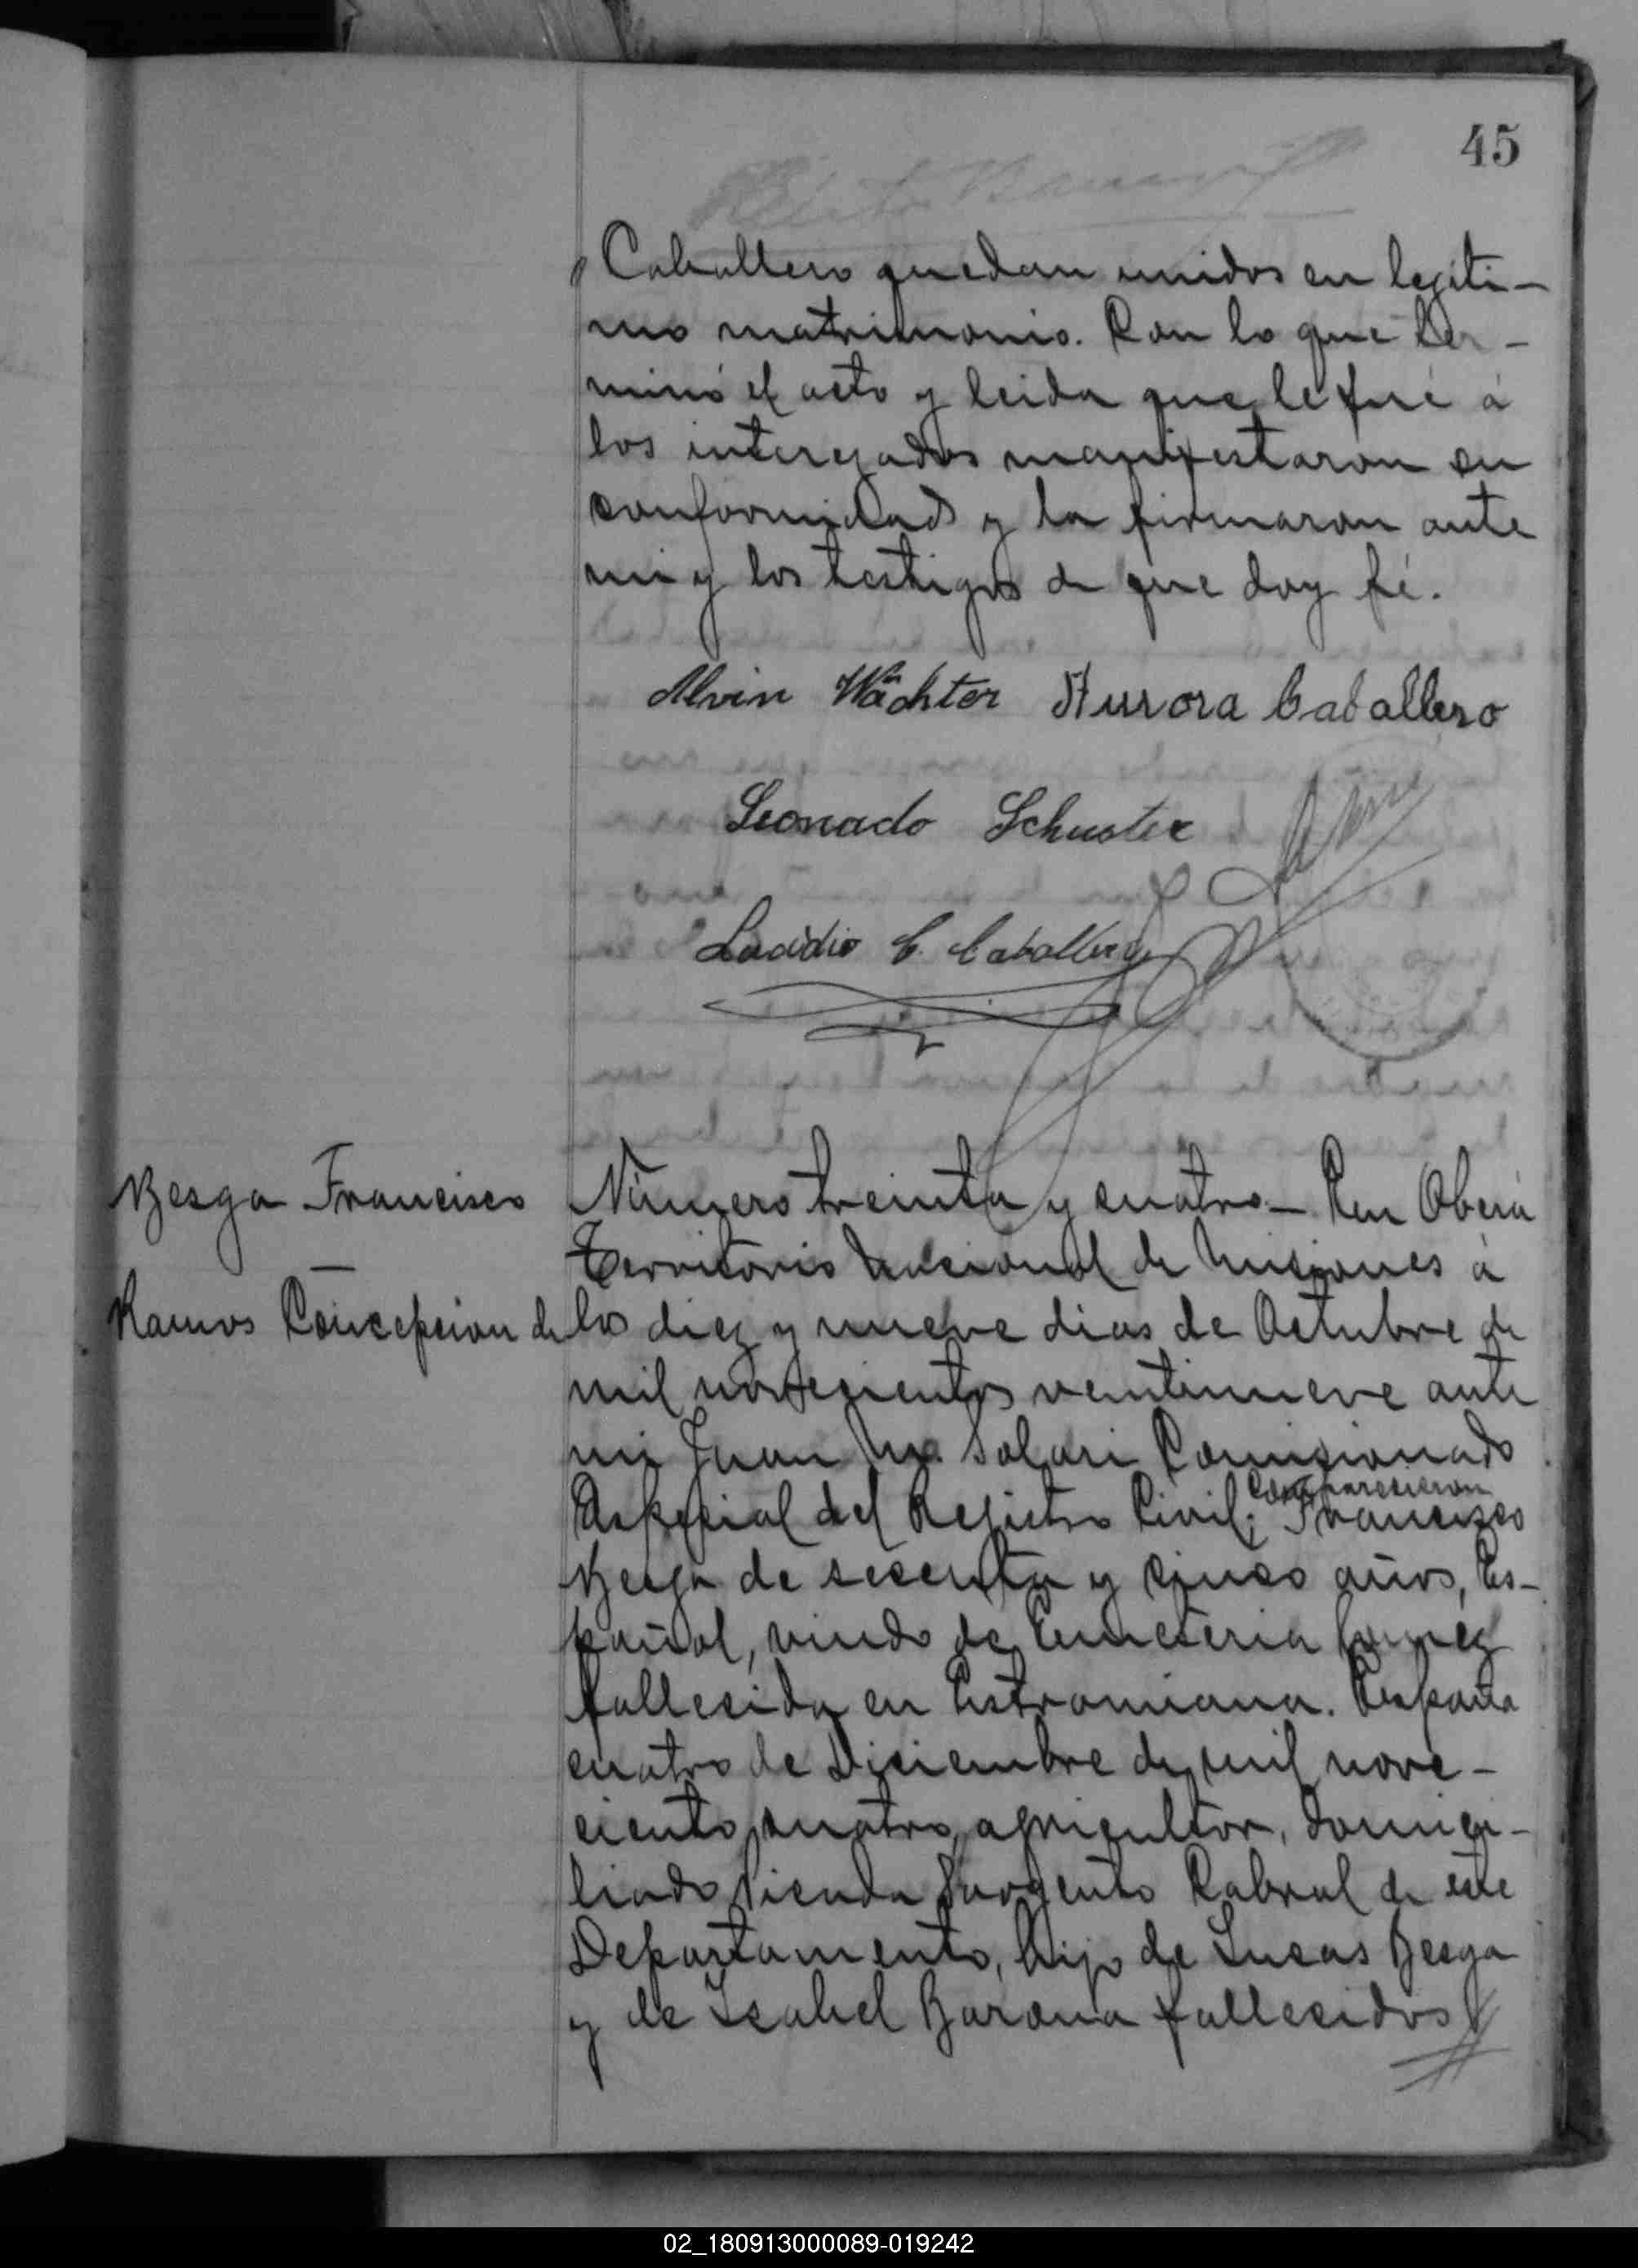 45
Caballero quedan unidos en legíti-
mo matrimonio. Con lo que ter-
minó el acto y leida que le fué á
los interezados manifestaron su
conformidad y la firmaron ante
mi y los testigos de que doy fé.
Alvin Wächter Aurora Caballero
Leonado Schuster
Leocidio C. Caballero
Besga Francisco
Ramos Concepcion de
Número treinta y cuatro — En Oberá
Territorio Nacional de Misiones á
los diez y nueve dias de Octubre de
mil novecientos veintinueve ante
mi Juan M. Solari Comisionado
Especial del Rejistro Civil; comparecieron Francisco
Besga de sesenta y cinco años, Es-
pañol, viudo de Emeteria Gomez
fallecida en Estramiana. España
cuatro de Diciembre de mil nove-
ciento cuatro, agricultor, domici-
liado Picada Sargento Cabral de este
Departamento, hijo de Lucas Besga
y de Isabel Barona fallecidos
02_180913000089-019242